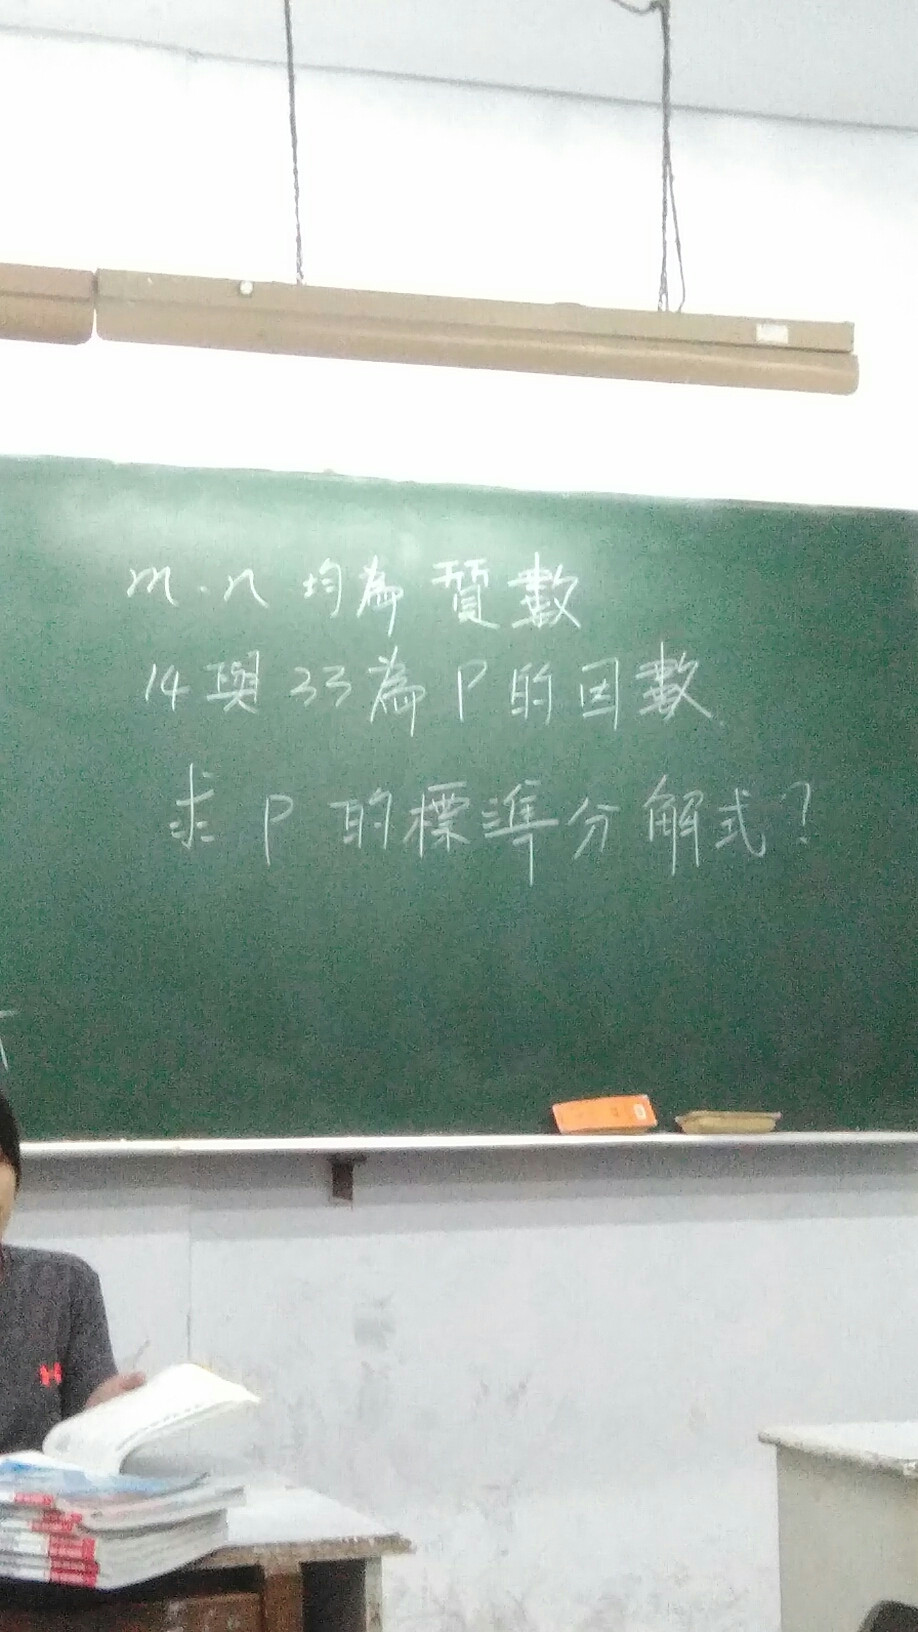 m．n 均為質數
14與33為P的因數
求P的標準分解式？